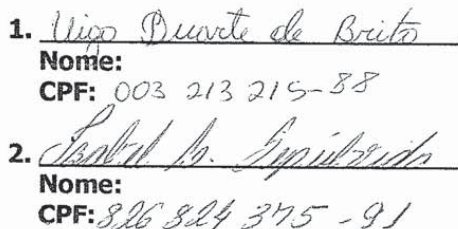 1. Uigo Duarte de Brito
Nome:
CPF: 003 213 215-88
2. Isabel
Nome:
CPF: 826 824 375-91